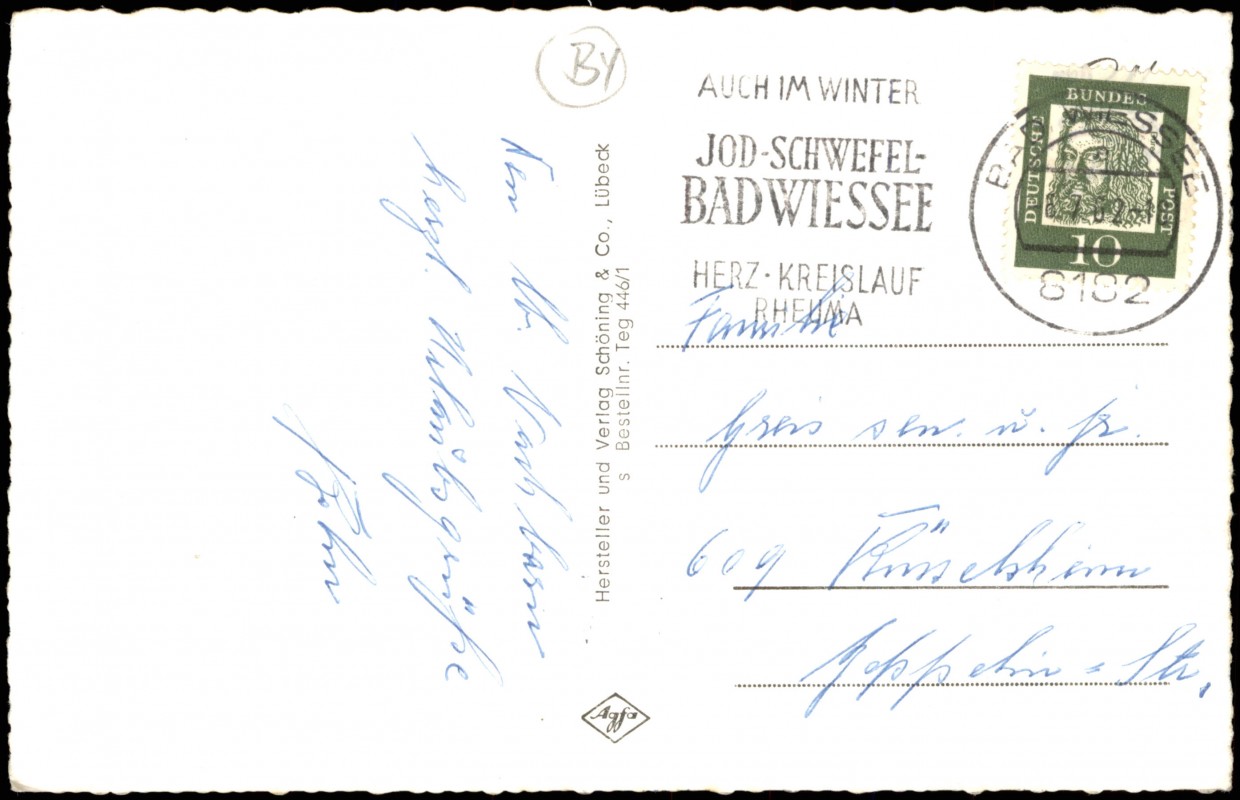 BY
Den lb. Nachbarn
herzl. Urlaubsgrüße
Hersteller und Verlag Schöning & Co., Lübeck
s Bestellnr. Teg 446/1
Agfa
AUCH IM WINTER
JOD-SCHWEFEL-
BAD WIESSEE
HERZ · KREISLAUF
RHEUMA
BAD WIESSEE
8182
DEUTSCHE
BUNDES
POST
10
Familie
Greis sen. u. jr.
609 Rüsselsheim
Zeppelin-Str.